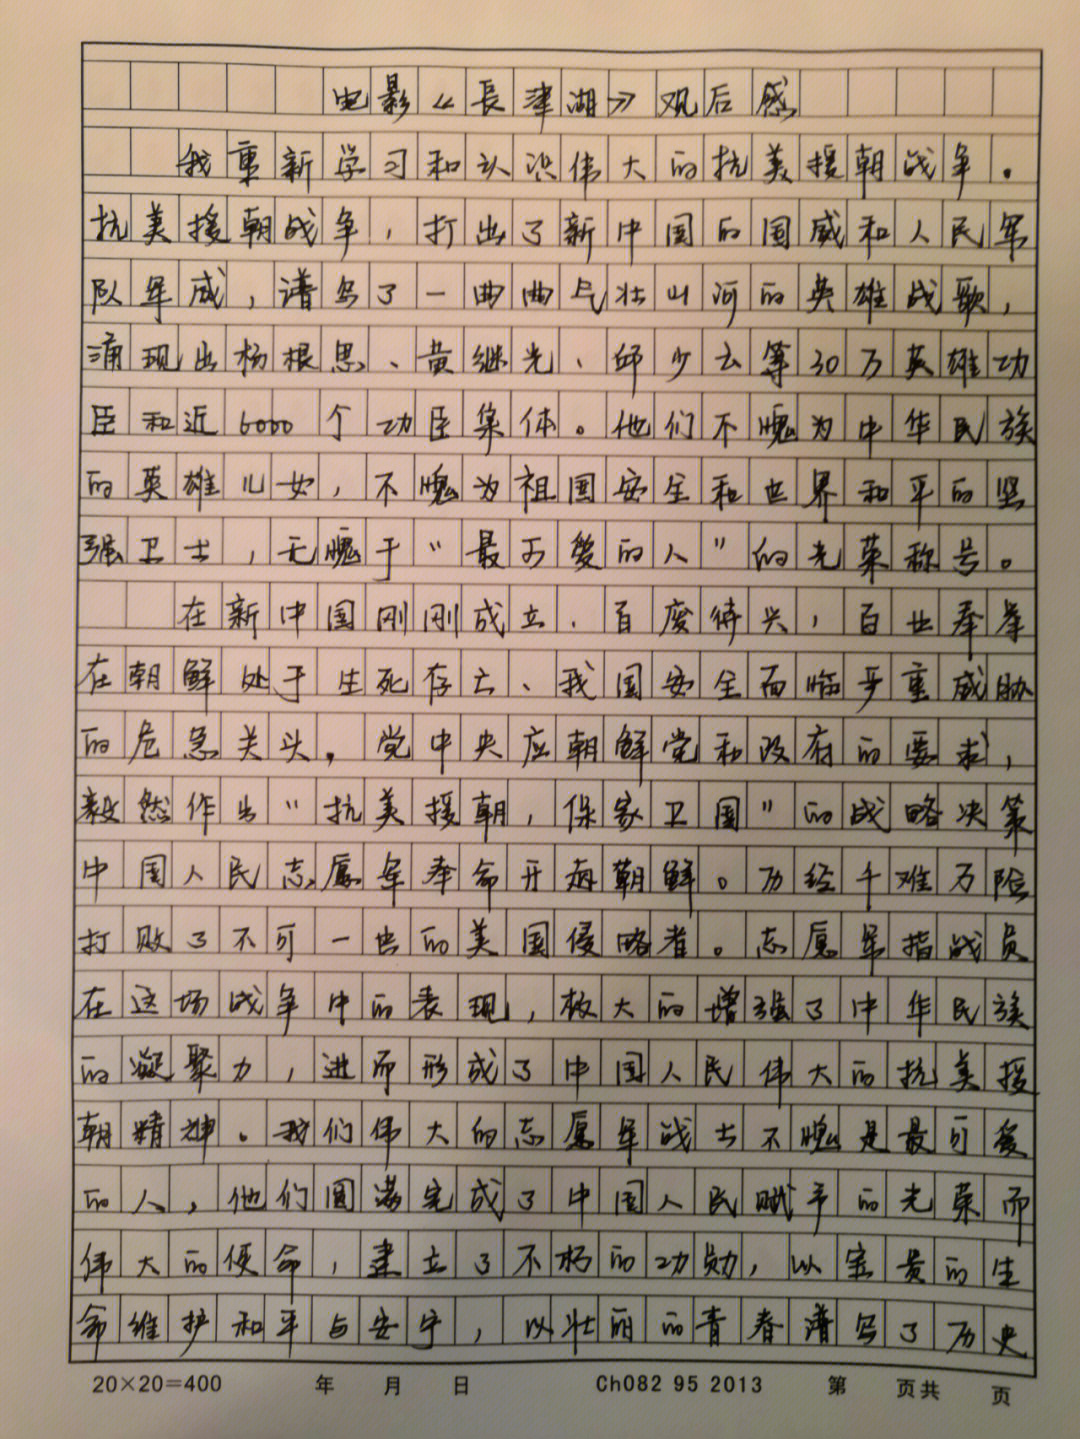 电影《長津湖》观后感
我重新学习和认识伟大的抗美援朝战争。
抗美援朝战争，打出了新中国的国威和人民军
队军威，谱写了一曲曲气壮山河的英雄战歌，
涌现出杨根思、黄继光、邱少云等30万英雄功
臣和近6000个功臣集体。他们不愧为中华民族
的英雄儿女，不愧为祖国安全和世界和平的坚
强卫士，无愧于“最可爱的人”的光荣称号。
在新中国刚刚成立、百废待兴，百业奉举
在朝鲜处于生死存亡、我国安全面临严重威胁
的危急关头。党中央应朝鲜党和政府的要求，
毅然作出“抗美援朝，保家卫国”的战略决策
中国人民志愿军奉命开赴朝鲜。历经千难万险
打败了不可一世的美国侵略者。志愿军指战员
在这场战争中的表现，极大的增强了中华民族
的凝聚力，进而形成了中国人民伟大的抗美援
朝精神。我们伟大的志愿军战士不愧是最可爱
的人，他们圆满完成了中国人民赋予的光荣而
伟大的使命，建立了不朽的功勋，以宝贵的生
命维护和平与安宁，以壮丽的青春谱写了历史
20×20=400 年 月 日 Ch082 95 2013 第 页共 页